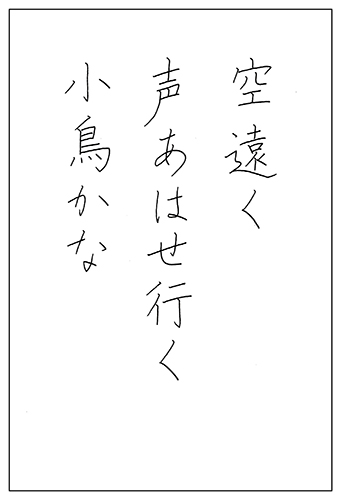 空遠く
声あはせ行く
小鳥かな